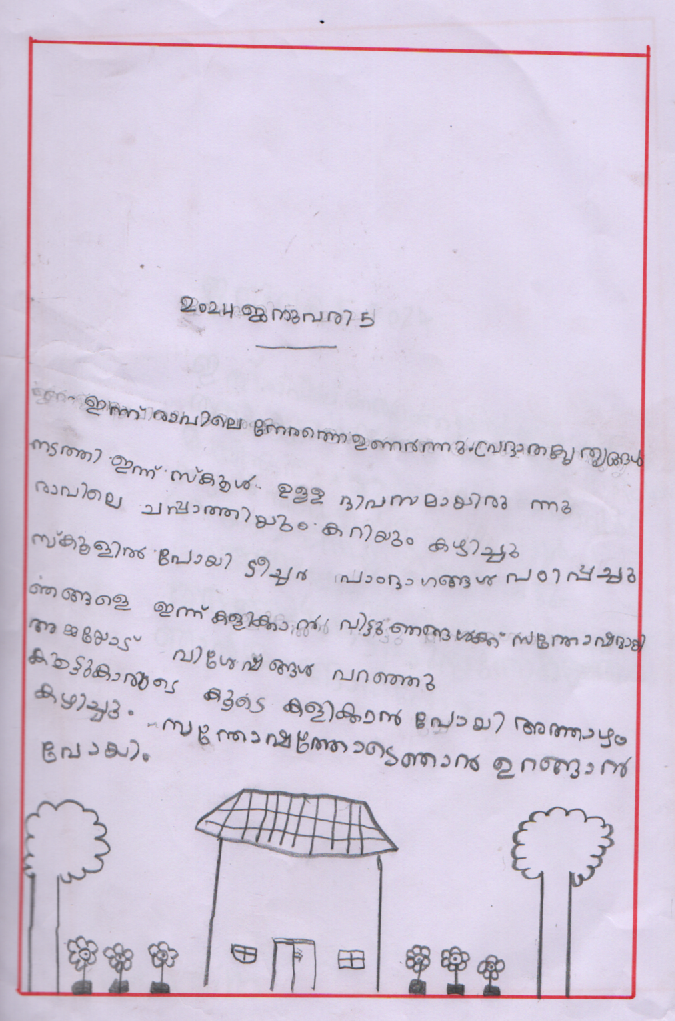 2024 ജനുവരി 5
ഇന്ന് രാവിലെ നേരത്തെ ഉണർന്നു. പ്രഭാതകൃത്യങ്ങൾ
നടത്തി ഇന്ന് സ്കൂൾ. ഉള്ള ദിവസമായിരു ന്നു
രാവിലെ ചപ്പാത്തിയും കറിയും കഴിച്ചു
സ്കൂളിൽ പോയി ടീച്ചർ പാഠഭാഗങ്ങൾ പഠിപ്പിച്ചു
ഞങ്ങളെ ഇന്ന് കളിക്കാൻ വിട്ടു ഞങ്ങൾക്ക് സന്തോഷമായി
അമ്മയോട് വിശേഷങ്ങൾ പറഞ്ഞു
കൂടെ കളിക്കാൻ പോയി അത്താഴം
കഴിച്ചു. സന്തോഷത്തോടെ ഞാൻ ഉറങ്ങാൻ
പോയി.